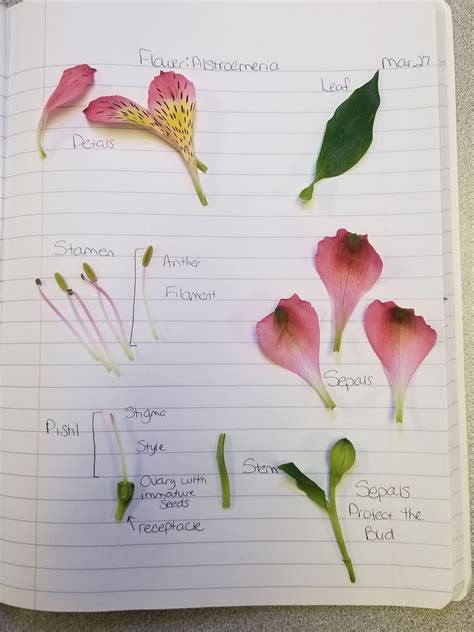 Flower: Alstroemeria
Mar. 27
Leaf
Petals
Stamen
Anther
Filament
Sepals
Pistil
Stigma
Style
Stem
Ovary with
immature
Seeds
receptacle
Sepals
Protect the
Bud